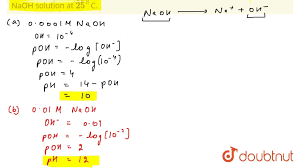 NaOH solution at 25°C.
(a) 0.0001M NaOH
NaOH → Na⁺ + OH⁻
OH = 10⁻⁴
pOH = -log [OH⁻]
pOH = -log (10⁻⁴)
pOH = 4
pH = 14 - pOH
= 10
(b) 0.01M NaOH
OH⁻ = 0.01
pOH = -log [10⁻²]
pOH = 2
pH = 12
doubtnut